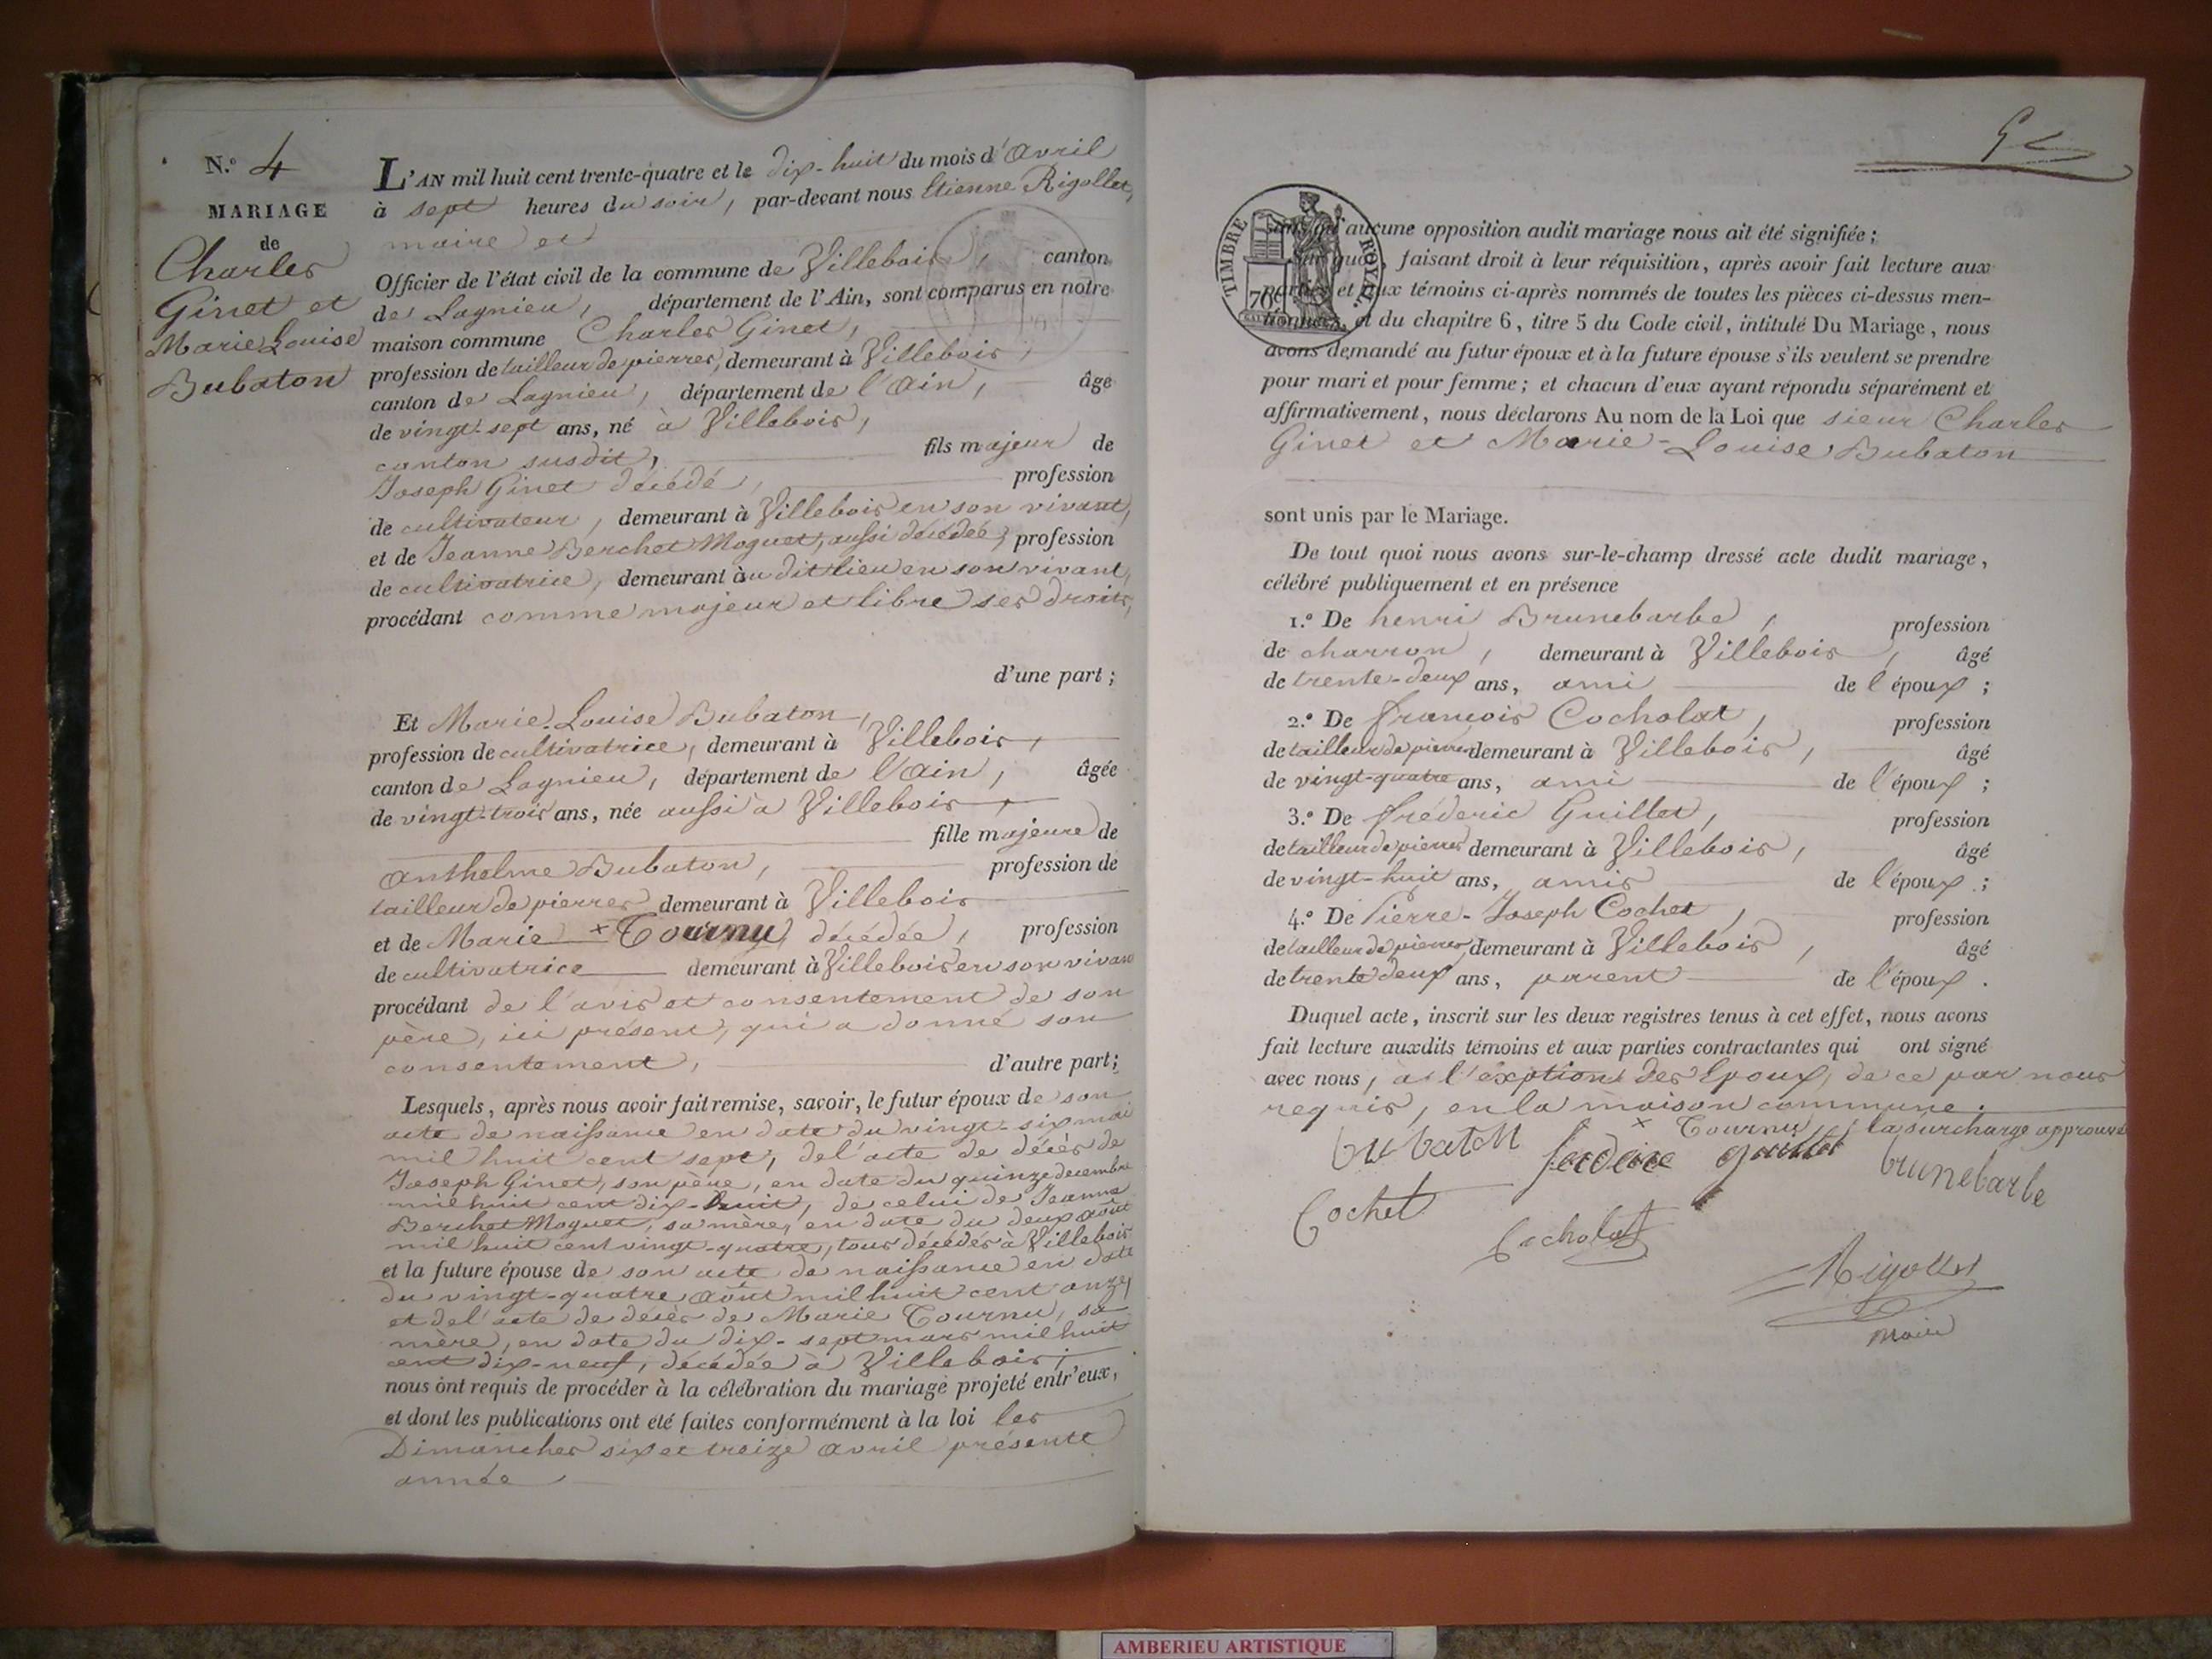 N.º 4
MARIAGE
de
Charles
Ginet et
Marie Louise
Bubaton
L'AN mil huit cent trente-quatre et le dix-huit du mois d'Avril
à sept heures du soir, par-devant nous Etienne Rigollet,
maire et
Officier de l'état civil de la commune de Villebois, canton
de Lagnieu, département de l'Ain, sont comparus en notre
maison commune Charles Ginet,
profession de tailleur de pierres, demeurant à Villebois,
canton de Lagnieu, département de l'Ain, âgé
de vingt-sept ans, né à Villebois,
canton susdit, fils majeur de
Joseph Ginet décédé, profession
de cultivateur, demeurant à Villebois en son vivant,
et de Jeanne Berchet Moguet, aussi décédée, profession
de cultivatrice, demeurant audit lieu en son vivant,
procédant comme majeur et libre ses droits,
d'une part ;
Et Marie Louise Bubaton,
profession de cultivatrice, demeurant à Villebois,
canton de Lagnieu, département de l'Ain, âgée
de vingt-trois ans, née aussi à Villebois,
fille majeure de
Anthelme Bubaton, profession de
tailleur de pierres demeurant à Villebois
et de Marie x Tournu, décédée, profession
de cultivatrice demeurant à Villebois en son vivant
procédant de l'avis et consentement de son
père, ici présent, qui a donné son
consentement, d'autre part ;
Lesquels, après nous avoir fait remise, savoir, le futur époux de son
acte de naissance en date du vingt-six mai
mil huit cent sept, de l'acte de décès de
Joseph Ginet, son père, en date du quinze decembre
mil huit cent dix-huit, de celui de Jeanne
Berchet Moguet, sa mère, en date du deux août
mil huit cent vingt-quatre, tous décédés à Villebois
et la future épouse de son acte de naissance en date
du vingt-quatre août mil huit cent onze,
et de l'acte de décès de Marie Tournu, sa
mère, en date du dix-sept mars mil huit
cent dix-neuf, décédée à Villebois ;
nous ont requis de procéder à la célébration du mariage projeté entr'eux,
et dont les publications ont été faites conformément à la loi les
Dimanches six et treize avril présente
année
TIMBRE ROYAL.
70c
sans qu'aucune opposition audit mariage nous ait été signifiée ;
Sur quoi, faisant droit à leur réquisition, après avoir fait lecture aux
parties et aux témoins ci-après nommés de toutes les pièces ci-dessus men-
tionnées, et du chapitre 6, titre 5 du Code civil, intitulé Du Mariage, nous
avons demandé au futur époux et à la future épouse s'ils veulent se prendre
pour mari et pour femme ; et chacun d'eux ayant répondu séparément et
affirmativement, nous déclarons Au nom de la Loi que sieur Charles
Ginet et Marie-Louise Bubaton
sont unis par le Mariage.
De tout quoi nous avons sur-le-champ dressé acte dudit mariage,
célébré publiquement et en présence
1.º De henri Brunebarbe, profession
de charron, demeurant à Villebois, âgé
de trente-deux ans, ami de l'époux ;
2.º De françois Cocholat, profession
de tailleur de pierres demeurant à Villebois, âgé
de vingt-quatre ans, ami de l'époux ;
3.º De fréderic Guillet, profession
de tailleur de pierres demeurant à Villebois, âgé
de vingt-huit ans, amis de l'époux ;
4.º De Pierre-Joseph Cochet, profession
de tailleur de pierres, demeurant à Villebois, âgé
de trente deux ans, parent de l'époux.
Duquel acte, inscrit sur les deux registres tenus à cet effet, nous avons
fait lecture auxdits témoins et aux parties contractantes qui ont signé
avec nous, à l'exption des Epoux, de ce par nous
requis, en la maison commune.
x Tournu, la surcharge approuvé
bubaton frederic guillet brunebarbe
Cochet
Cocholat
Rigollet
maire
AMBERIEU ARTISTIQUE